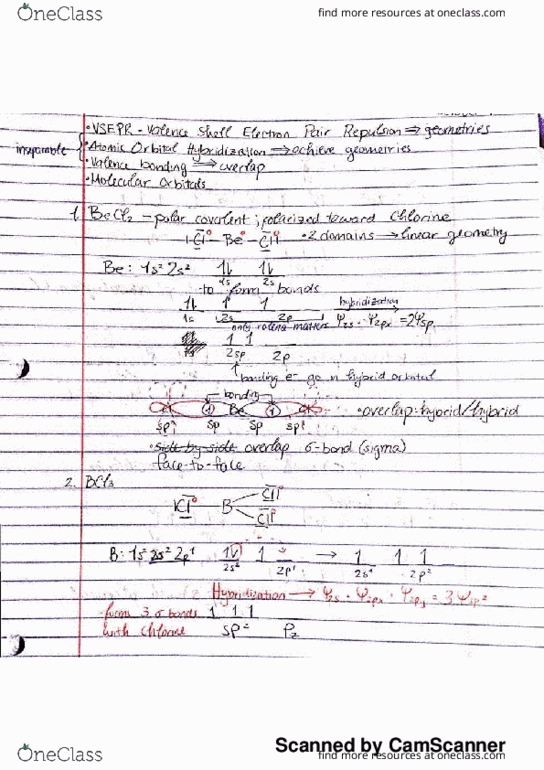 OneClass
find more resources at oneclass.com
• VSEPR - Valence Shell Electron Pair Repulsion ⟹ geometries
inseparable • Atomic Orbital Hybridization ⟹ achieve geometries
• Valence bonding ⟹ overlap
• Molecular Orbitals
1. BeCl₂ - polar covalent ; polarized toward Chlorine
|Cl - Be - Cl| • 2 domains → linear geometry
Be: 1s² 2s² 1s 2s
to form bonds
1s 2s 2p hybridization Ψ2s · Ψ2px = 2Ψsp
only valence matters
2sp 2p
bonding e⁻ go in hybrid orbital
bonding
Be • overlap: hybrid/hybrid
sp sp sp sp
• side by side overlap σ-bond (sigma)
face-to-face
2. BCl₃
|Cl B Cl|
Cl|
B: 1s² 2s² 2p¹ 1 → 1 1 1
2s² 2p¹ 2s¹ 2p²
Hybridization → Ψ2s · Ψ2px · Ψ2py = 3Ψsp²
- forms 3 σ bonds 1 1 1
with chlorine sp² Pz
Scanned by CamScanner
OneClass
find more resources at oneclass.com